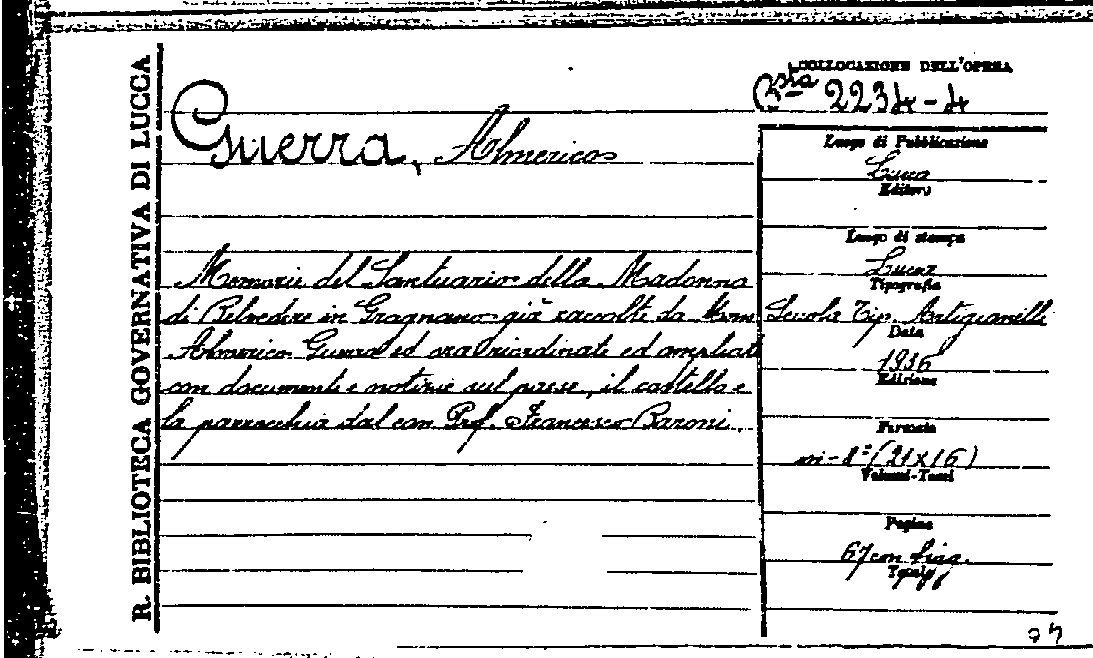 R. BIBLIOTECA GOVERNATIVA DI LUCCA
Guerra, Almerico
Memorie del Santuario della Madonna
di Belvedere in Gragnano già raccolte da Mons
Almerico Guerra ed ora riordinate ed ampliate
con documenti e notizie sul paese, il castello e
la parrocchia dal can Prof. Francesco Baroni.
COLLOCAZIONE DELL'OPERA
Bsta 2234-4
Luogo di Pubblicazione
Lucca
Editore
Luogo di stampa
Lucca
Tipografia
Scuola Tip. Artigianelli
Data
1936
Edizione
Formato
in-8º (21x16)
Volumi-Tomi
Pagine
67 con